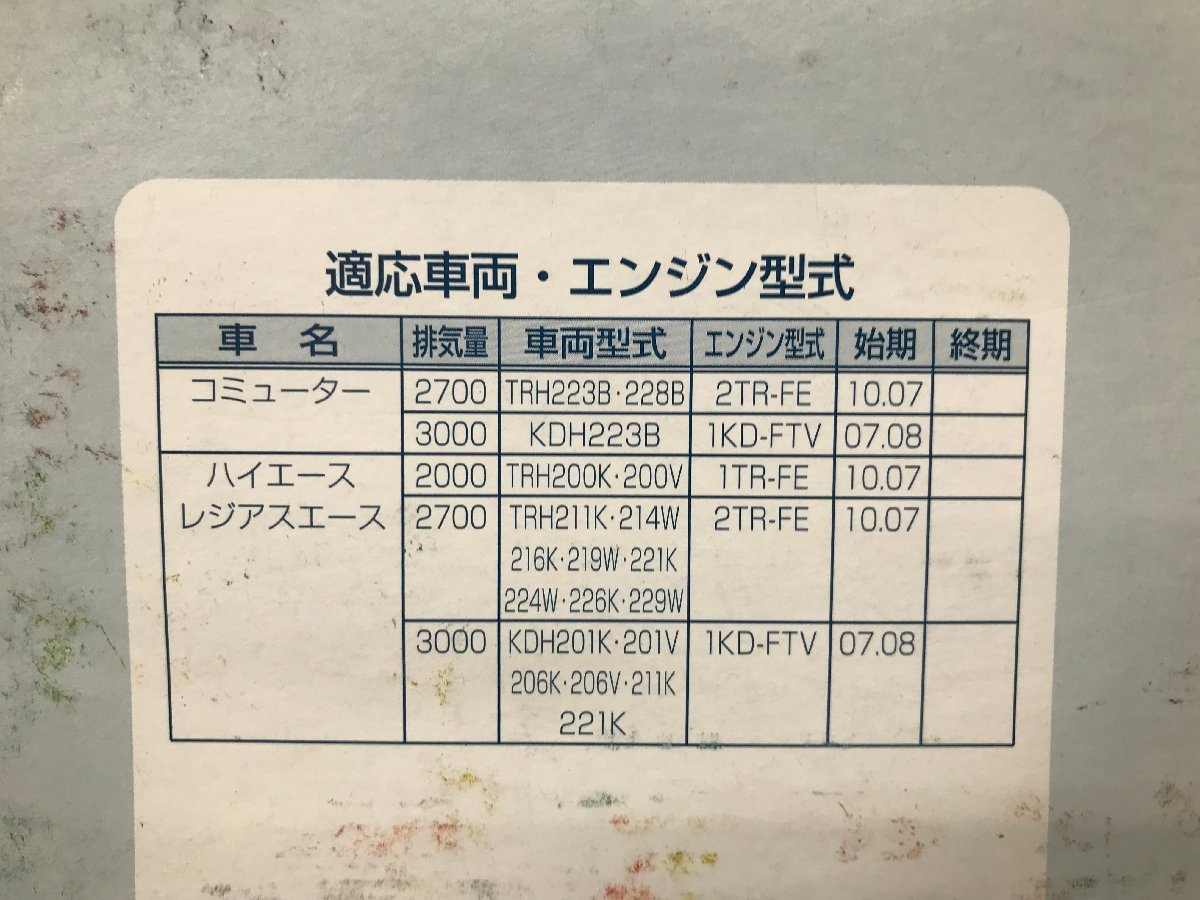 適応車両・エンジン型式
車名 排気量 車両型式 エンジン型式 始期 終期
コミューター 2700 TRH223B・228B 2TR-FE 10.07
3000 KDH223B 1KD-FTV 07.08
ハイエース 2000 TRH200K・200V 1TR-FE 10.07
レジアスエース 2700 TRH211K・214W 2TR-FE 10.07
216K・219W・221K
224W・226K・229W
3000 KDH201K・201V 1KD-FTV 07.08
206K・206V・211K
221K